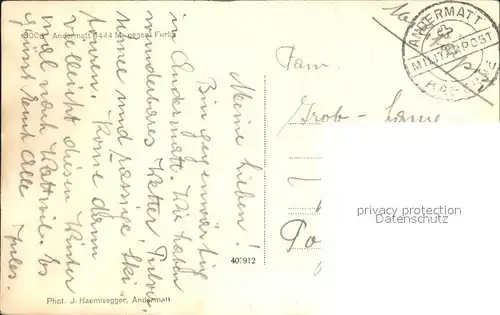 3008 Andermatt 1444 M. gegen Furka
Meine Lieben!
Bin gegenwärtig
in Andermatt. Wir haben
wunderbares Wetter, Pulver
schnee und rassige Ski-
touren. Könnte dann
vielleicht diesen Winter
mal nach Wattwil. Es
grüsst Euch Alle
Jules.
Phot. J. Haemisegger, Andermatt
407912
ANDERMATT
MILITÄRPOST
Fam.
Grob-
privacy protection
Datenschutz